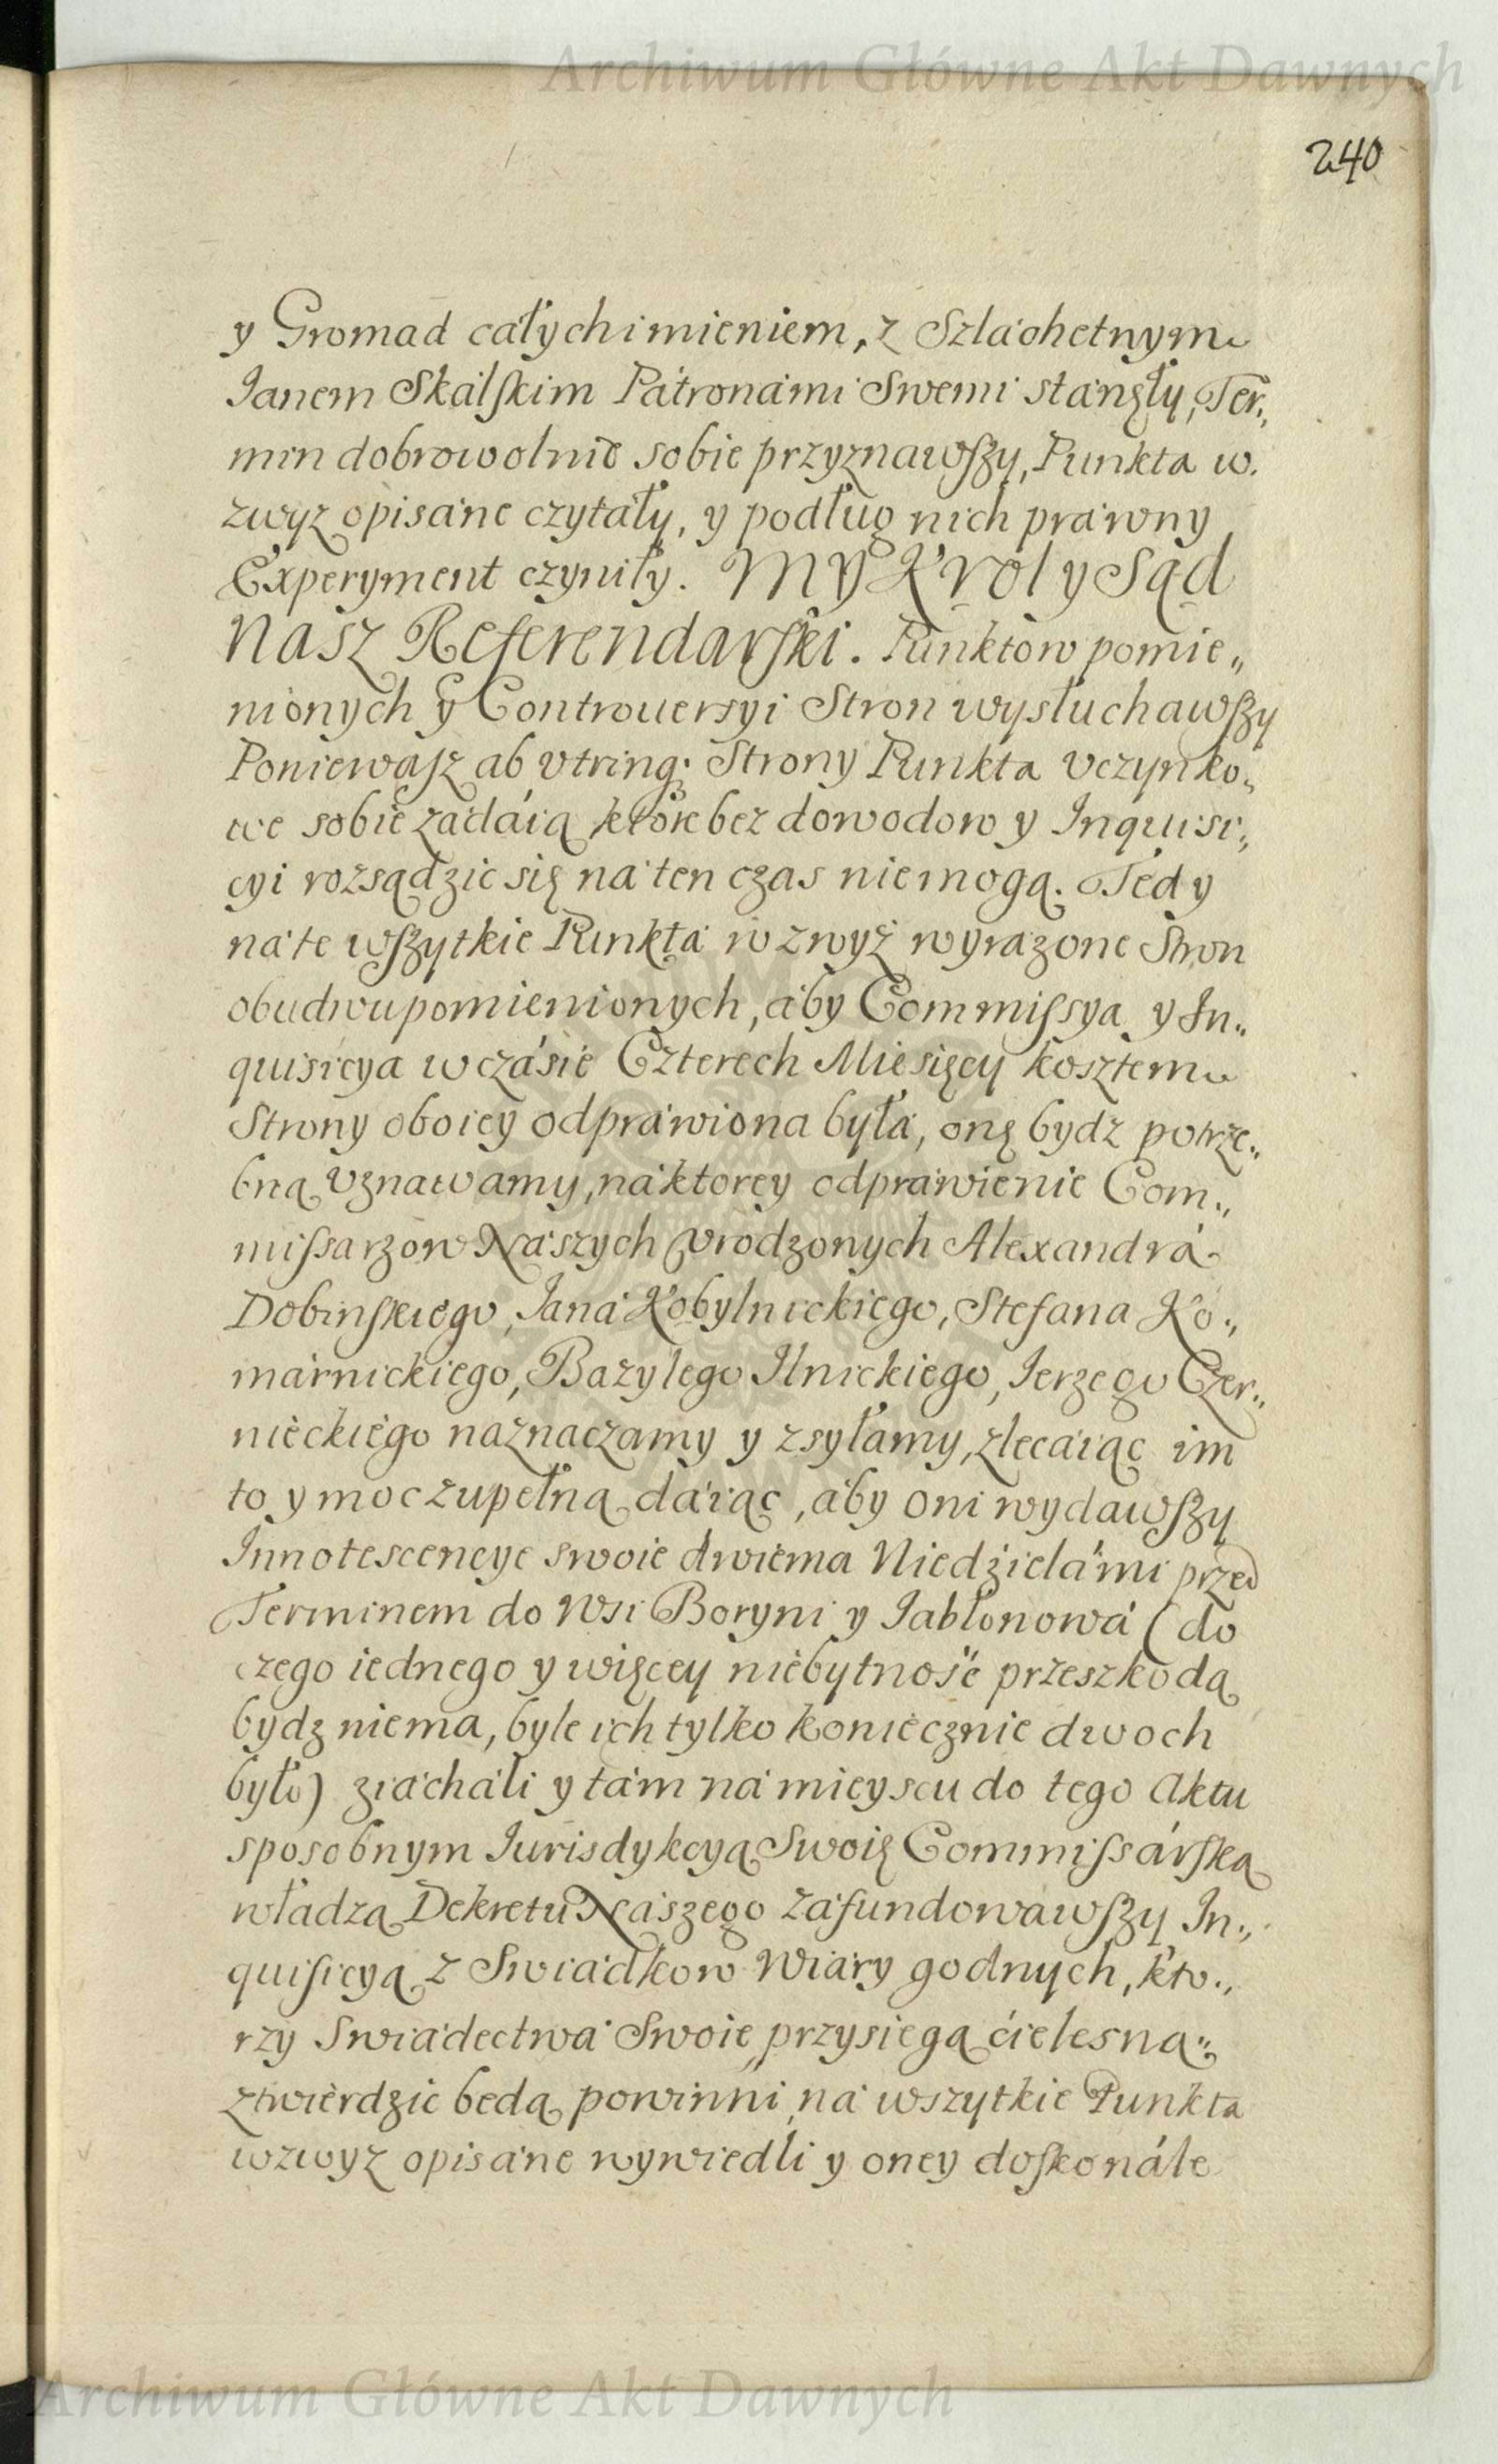 Archiwum Główne Akt Dawnych
240
y Gromad całych imieniem, z Szlachetnym
Janem Skálſkim Pátronámi Swemi stánęły, Ter„
min dobrowolnie sobie przyznawſzy, Punkta w.
zwyz opisáne czytáły, y podług nich práwny
Experyment czyniły. My Krol y Sąd
Nasz Referendarſki. Punktow pomie„
nionych y Controuersyi Stron wysłuchawſzy
Poniewaſz ab vtrinq; Strony Punkta vczynko„
we sobie zadáią ktore bez dowodow y Inquisi„
cyi rozsądzic się ná ten czas niemogą. Tedy
ná te wſzytkie Punktá wzwyż wyrażone Stron
obudwu pomienionych, áby Commiſsya y In„
quisicya w czásie Czterech Miesięcy kosztem
Strony oboiey odpráwiona byłá, onę bydz potrze„
bną vznawamy, ná ktorey odpráwienie Com„
miſsarzow Nászych vrodzonych Alexandrá
Dobinſkiego, Janá Kobylnickiego, Stefana Ko„
márnickiego, Bazylego Ilnickiego, Jerzego Czer„
nieckiego náznaczamy y zsyłamy, zlecáiąc im
to y moc zupełną dáiąc, áby oni wydawſzy
Innotescencye swoie dwiema Niedzielámi przed
Terminem do Wsi Boryni y Jabłonowá (do
czego iednego y więcey niebytność przeszkodą
bydz niema, byle ich tylko koniecznie dwoch
było) ziácháli y tám ná mieyscu do tego Aktu
sposobnym Jurisdykcyą Swoię Commiſsárſką
władzą Dekretu Nászego záfundowawſzy In„
quiſicyą z Swiádkow Wiáry godnych, kto„
rzy Swiádectwá Swoie przysiegą ćielesną„
ztwierdzic bedą powinni ná wszytkie Punkta
wzwyz opisáne wywiedli y oney doſkonále
Archiwum Główne Akt Dawnych